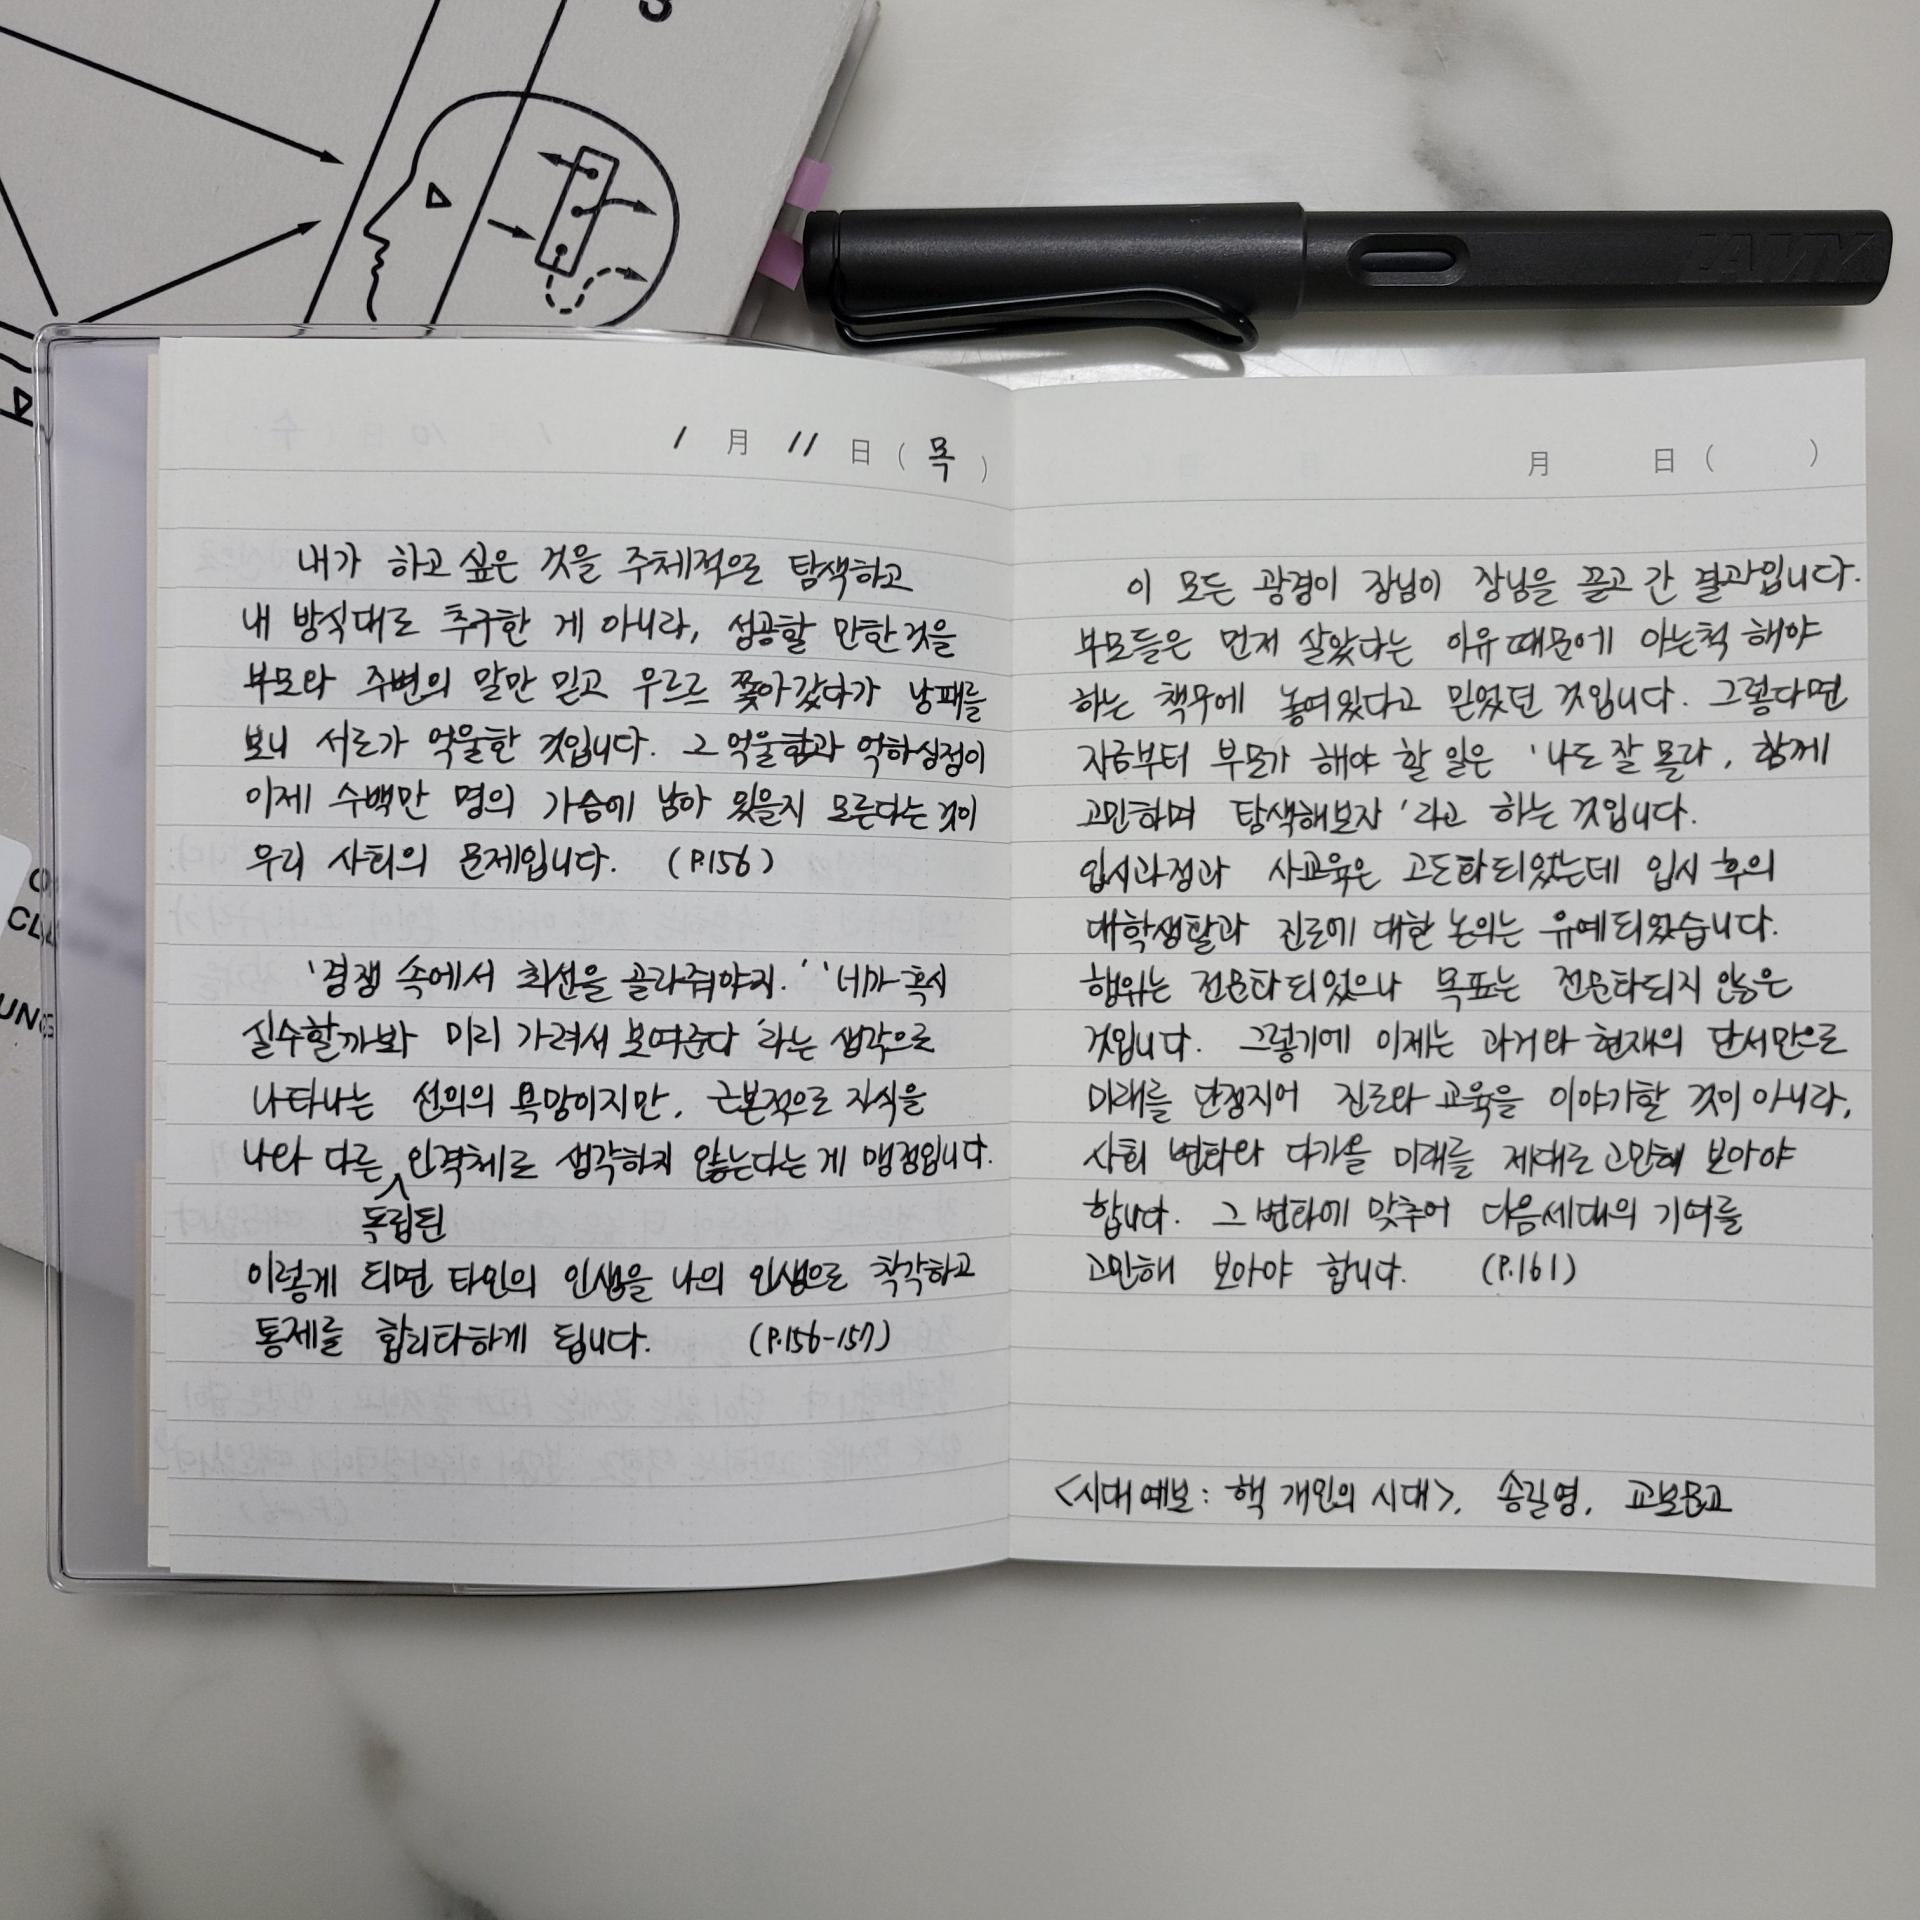 1 月 11 日 ( 목 )
내가 하고 싶은 것을 주체적으로 탐색하고
내 방식대로 추구한 게 아니라, 성공할 만한 것을
부모와 주변의 말만 믿고 우르르 쫓아갔다가 낭패를
보니 서로가 억울한 것입니다. 그 억울함과 억하심정이
이제 수백만 명의 가슴에 남아 있을지 모른다는 것이
우리 사회의 문제입니다. (P.156)
'경쟁 속에서 최선을 골라줘야지.' '네가 혹시
실수할까봐 미리 가려서 보여준다'라는 생각으로
나타나는 선의의 욕망이지만, 근본적으로 자식을
나와 다른 인격체로 생각하지 않는다는 게 맹점입니다.
독립된
이렇게 되면 타인의 인생을 나의 인생으로 착각하고
통제를 합리화하게 됩니다. (P.156-157)
月 日 ( )
이 모든 광경이 장님이 장님을 끌고 간 결과입니다.
부모들은 먼저 살았다는 이유 때문에 아는척 해야
하는 책무에 놓여있다고 믿었던 것입니다. 그렇다면
지금부터 부모가 해야 할 일은 '나도 잘 몰라, 함께
고민하며 탐색해보자'라고 하는 것입니다.
입시과정과 사교육은 고도화되었는데 입시 후의
대학생활과 진로에 대한 논의는 유예되었습니다.
행위는 전문화되었으나 목표는 전문화되지 않은
것입니다. 그렇기에 이제는 과거와 현재의 단서만으로
미래를 단정지어 진로와 교육을 이야기할 것이 아니라,
사회 변화와 다가올 미래를 제대로 고민해 보아야
합니다. 그 변화에 맞추어 다음세대의 기여를
고민해 보아야 합니다. (P.161)
<시대예보: 핵 개인의 시대>, 송길영, 교보문고
LAMY